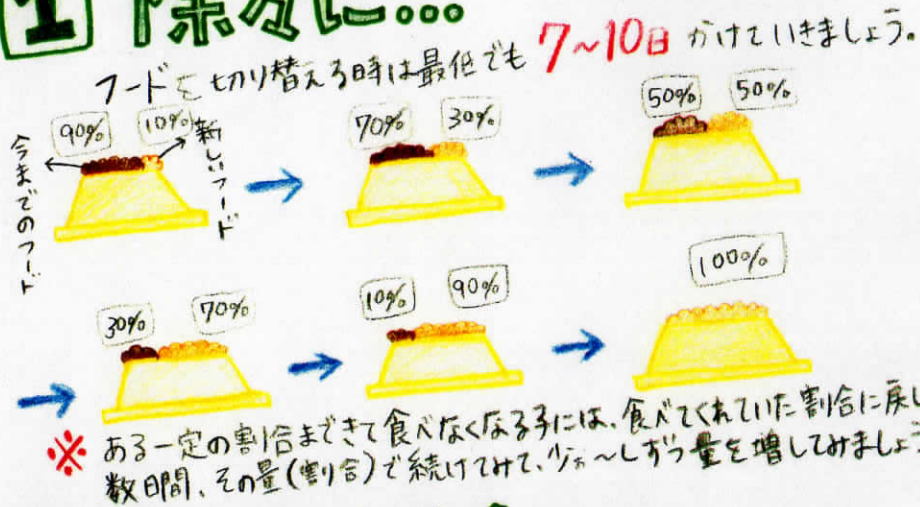 1 徐々に...
フードを切り替える時は最低でも7~10日かけていきましょう。
90% 10%
今までのフード
新しいフード
70% 30%
50% 50%
30% 70%
10% 90%
100%
※ ある一定の割合まできて食べなくなる子には、食べてくれていた割合に戻し
数日間、その量(割合)で続けてみて、少ぉ~しずつ量を増してみましょう